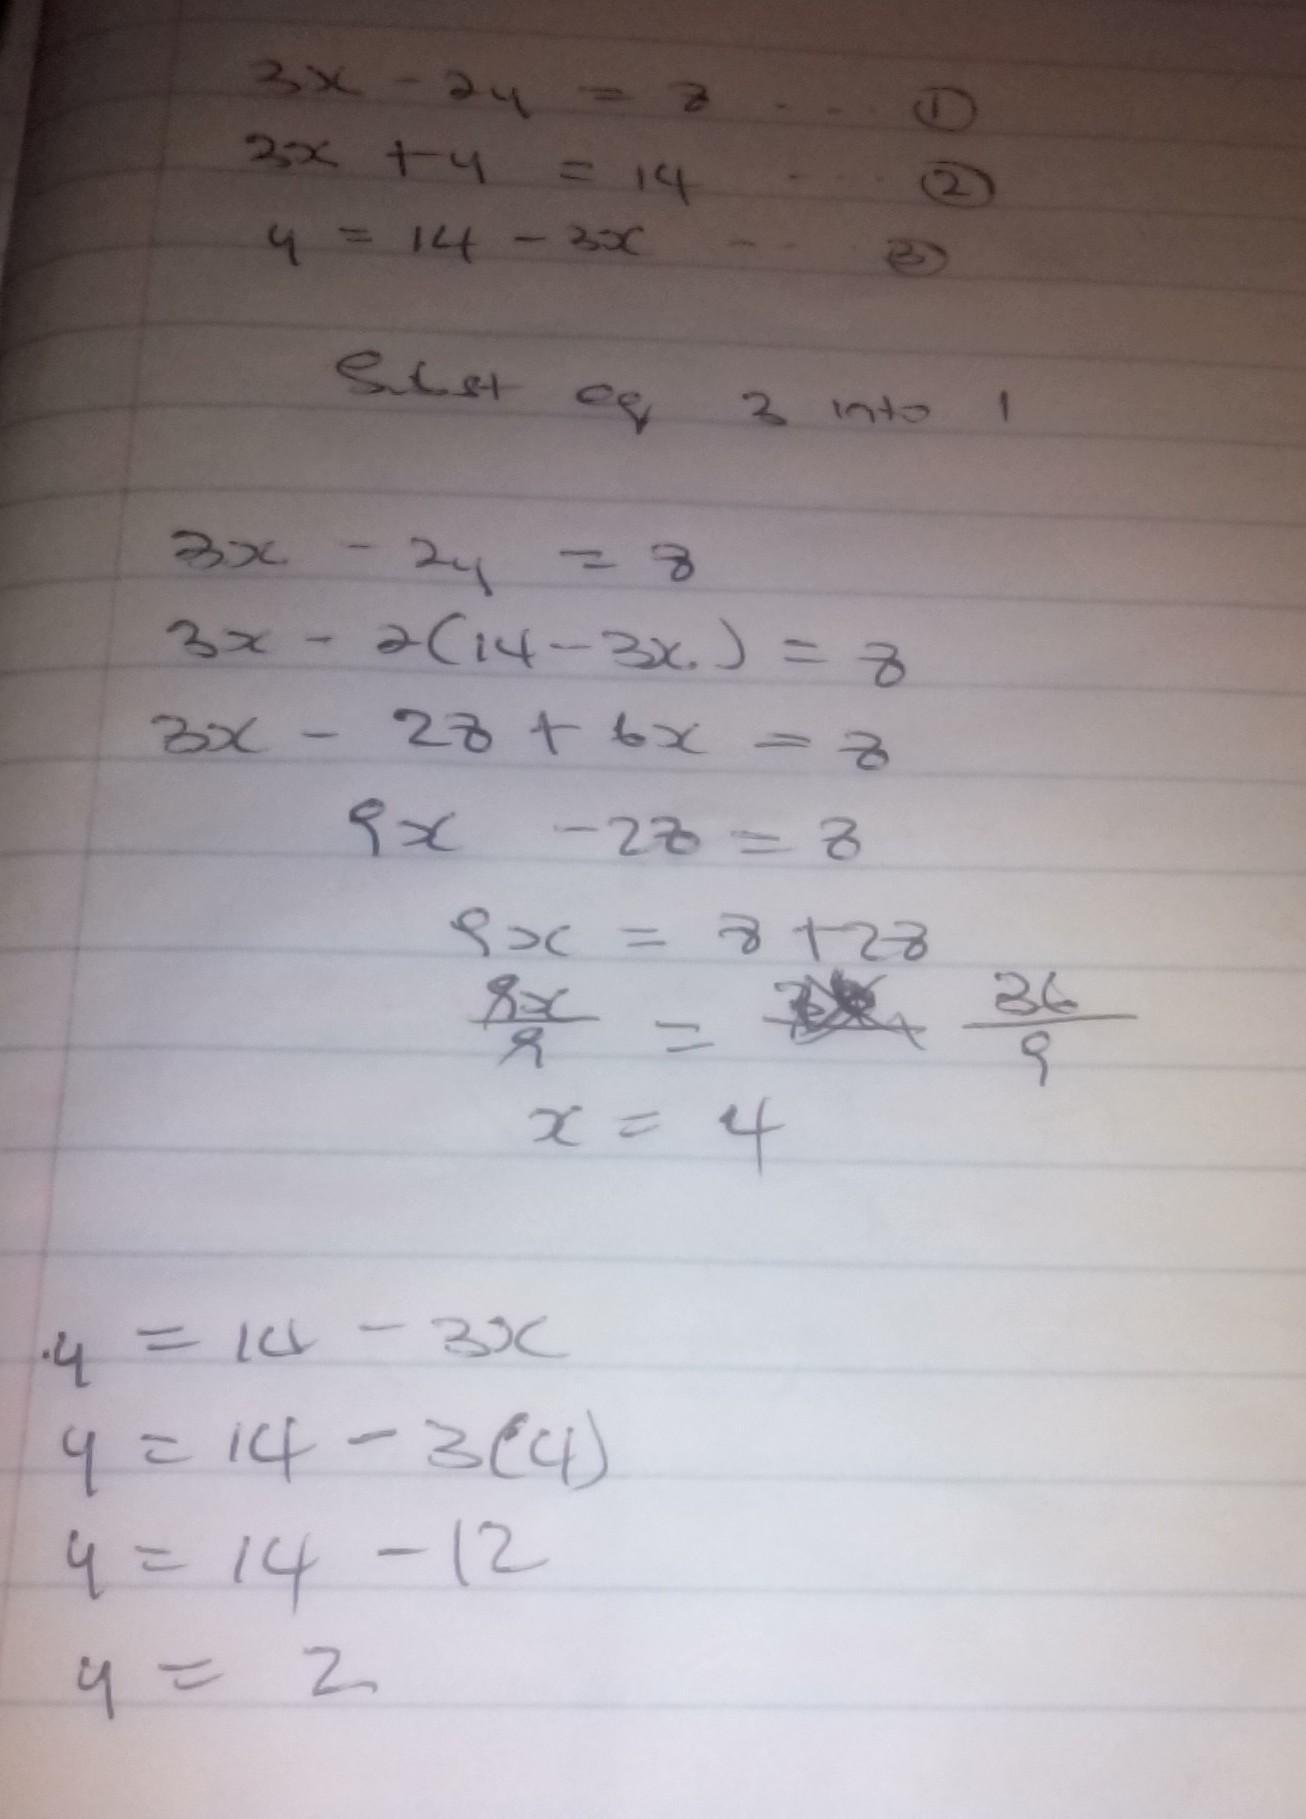 3x - 2y = 8 .... ①
3x + y = 14 .... ②
y = 14 - 3x .... ③
Subst eq 3 into 1
3x - 2y = 8
3x - 2(14 - 3x.) = 8
3x - 28 + 6x = 8
9x - 28 = 8
9x = 8 + 28
9x/9 = 36/9
x = 4
y = 14 - 3x
y = 14 - 3(4)
y = 14 - 12
y = 2